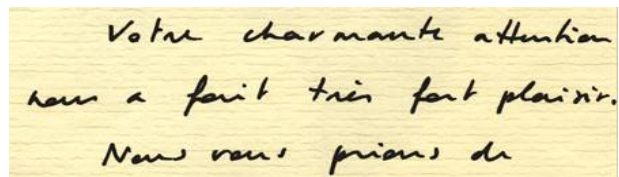 Votre charmante attention
nous a fait très fort plaisir.
Nous vous prions de